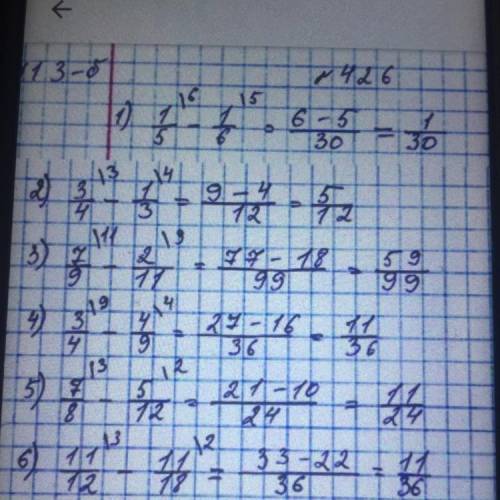 113-б
№426
1) 1/5\6 - 1/6\5 = 6-5/30 = 1/30
2) 3/4\3 - 1/3\4 = 9-4/12 = 5/12
3) 7/9\11 - 2/11\9 = 77-18/99 = 59/99
4) 3/4\9 - 4/9\4 = 27-16/36 = 11/36
5) 7/8\3 - 5/12\2 = 21-10/24 = 11/24
6) 11/12\3 - 11/18\2 = 33-22/36 = 11/36